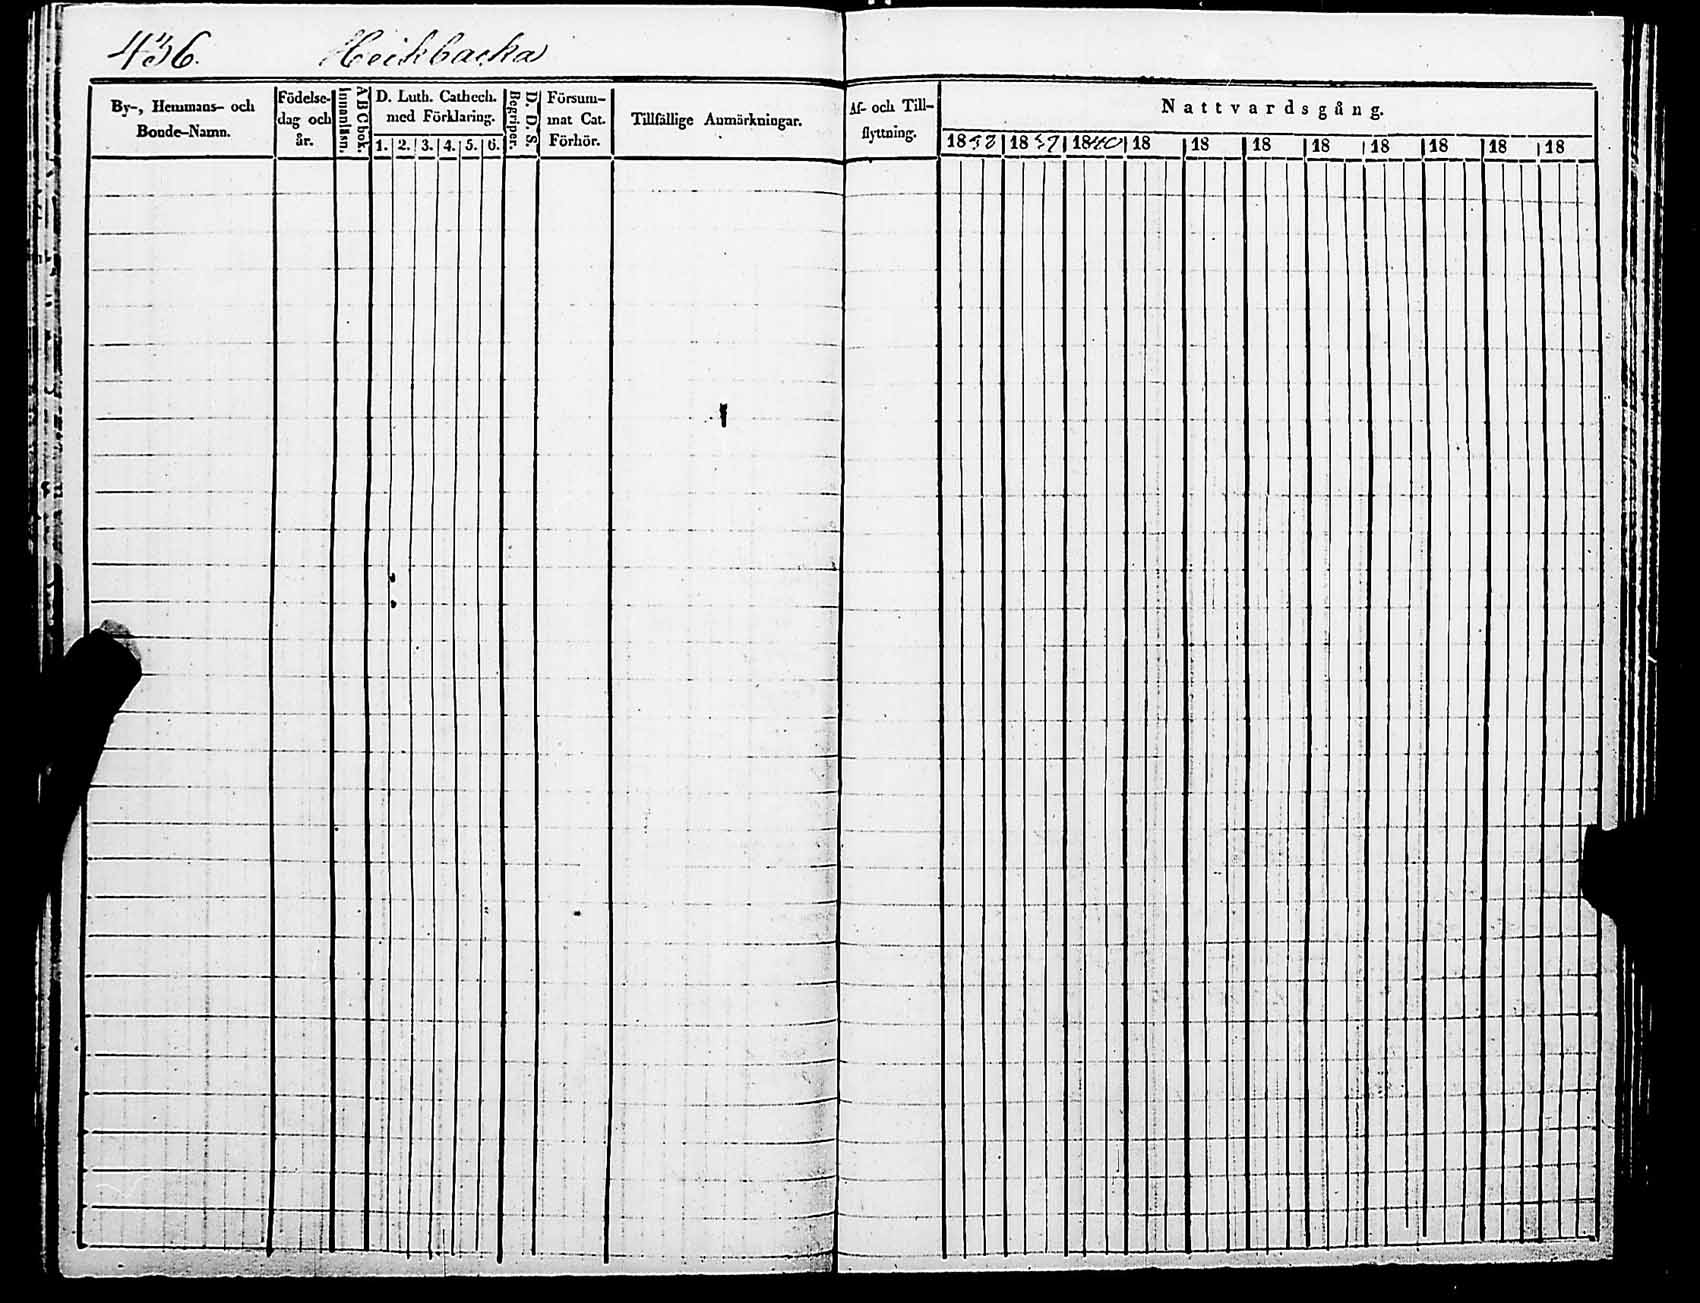 436. Heikbacka
By-, Hemmans- och Bonde-Namn.
Födelse-dag och år.
Innanläsn.
A B C bok.
D. Luth. Cathech. med Förklaring.
1. 2. 3. 4. 5. 6.
Begriper.
D. D. S.
Försum-mat Cat. Förhör.
Tillfällige Anmärkningar.
Af- och Till-flyttning.
Nattvardsgång.
1838 1839 1840 18 18 18 18 18 18 18 18